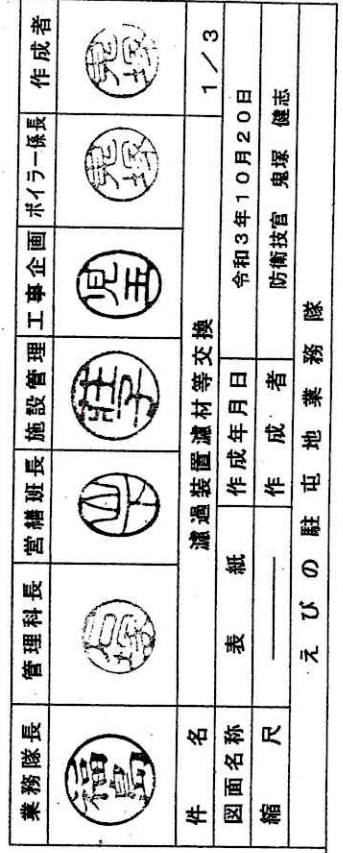 業務隊長 管理科長 営繕班長 施設管理 工事企画 ボイラー係長 作成者
児玉
件名 濾過装置濾材等交換 1/3
図面名称 表紙 作成年月日 令和3年10月20日
縮尺 ――― 作成者 防衛技官 鬼塚 健志
えびの駐屯地業務隊